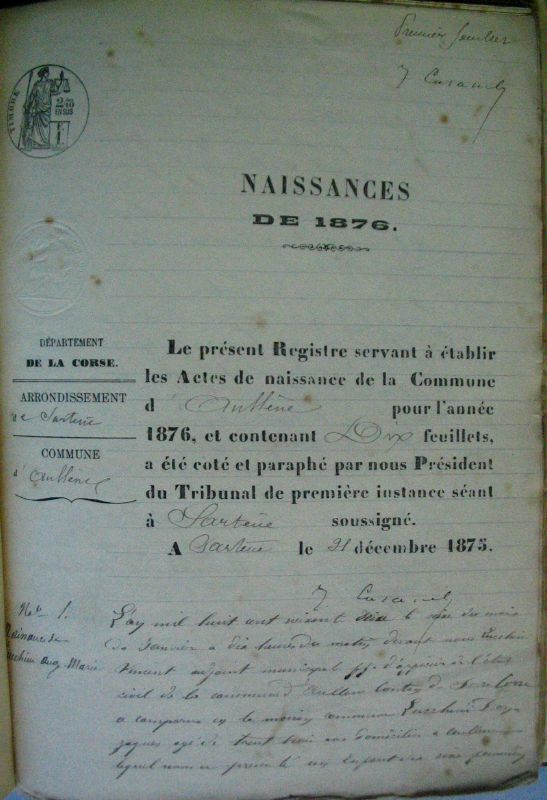 Premier feuillet
TIMBRE
2/10
EN SUS
NAISSANCES
DE 1876.
DÉPARTEMENT
DE LA CORSE.
ARRONDISSEMENT
de Sartène
COMMUNE
d'Aullène
Le présent Registre servant à établir
les Actes de naissance de la Commune
d'Aullène pour l'année
1876, et contenant Dix feuillets,
a été coté et paraphé par nous Président
du Tribunal de première instance séant
à Sartène soussigné.
A Sartène le 21 décembre 1875.
No 1.
Naissance de
Lucchini Marie
L'an mil huit cent soixante seize le du mois
de Janvier à dix heures du matin devant nous Lucchini
Vincent adjoint municipal d'officier de l'état
civil de la commune d'Aullène canton de
a comparu en la maison commune Lucchini
Jacques agé de trente ans domicilié à Aullène
lequel nous a présenté un enfant du sexe féminin